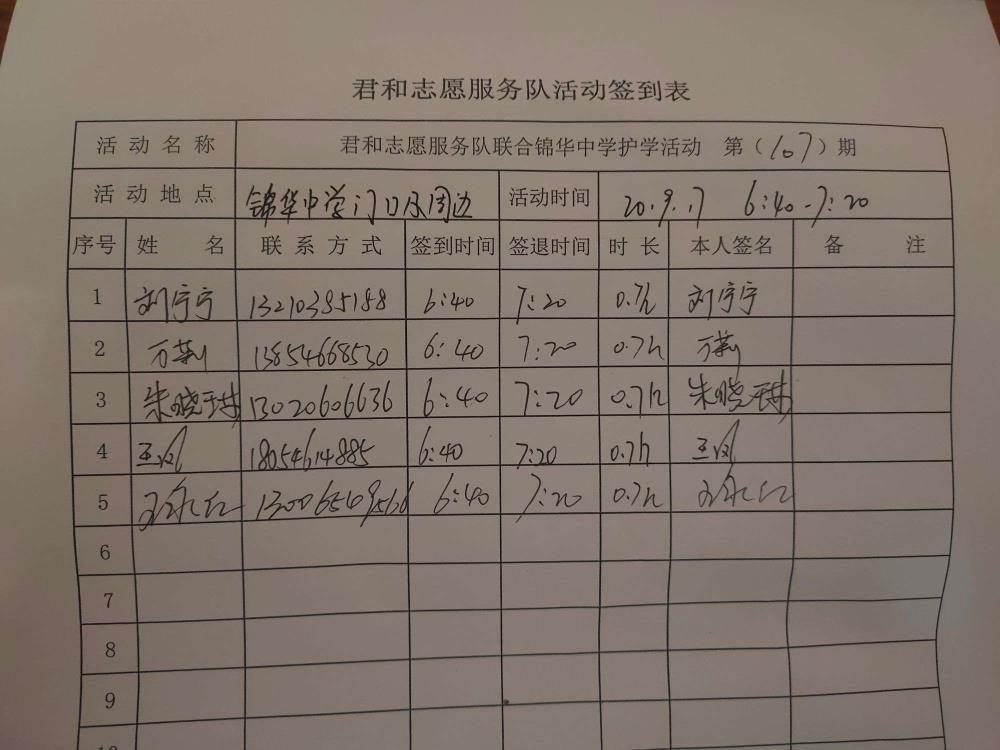 君和志愿服务队活动签到表
活动名称 君和志愿服务队联合锦华中学护学活动 第（107）期
活动地点 锦华中学门口及周边 活动时间 20.9.17 6:40-7:20
序号 姓名 联系方式 签到时间 签退时间 时长 本人签名 备注
1 刘宁宁 13210385188 6:40 7:20 0.7h 刘宁宁
2 万莉 13854668530 6:40 7:20 0.7h 万莉
3 朱晓琳 13020606636 6:40 7:20 0.7h 朱晓琳
4 王凤 18054614885 6:40 7:20 0.7h 王凤
5 13006549566 6:40 7:20 0.7h
6
7
8
9